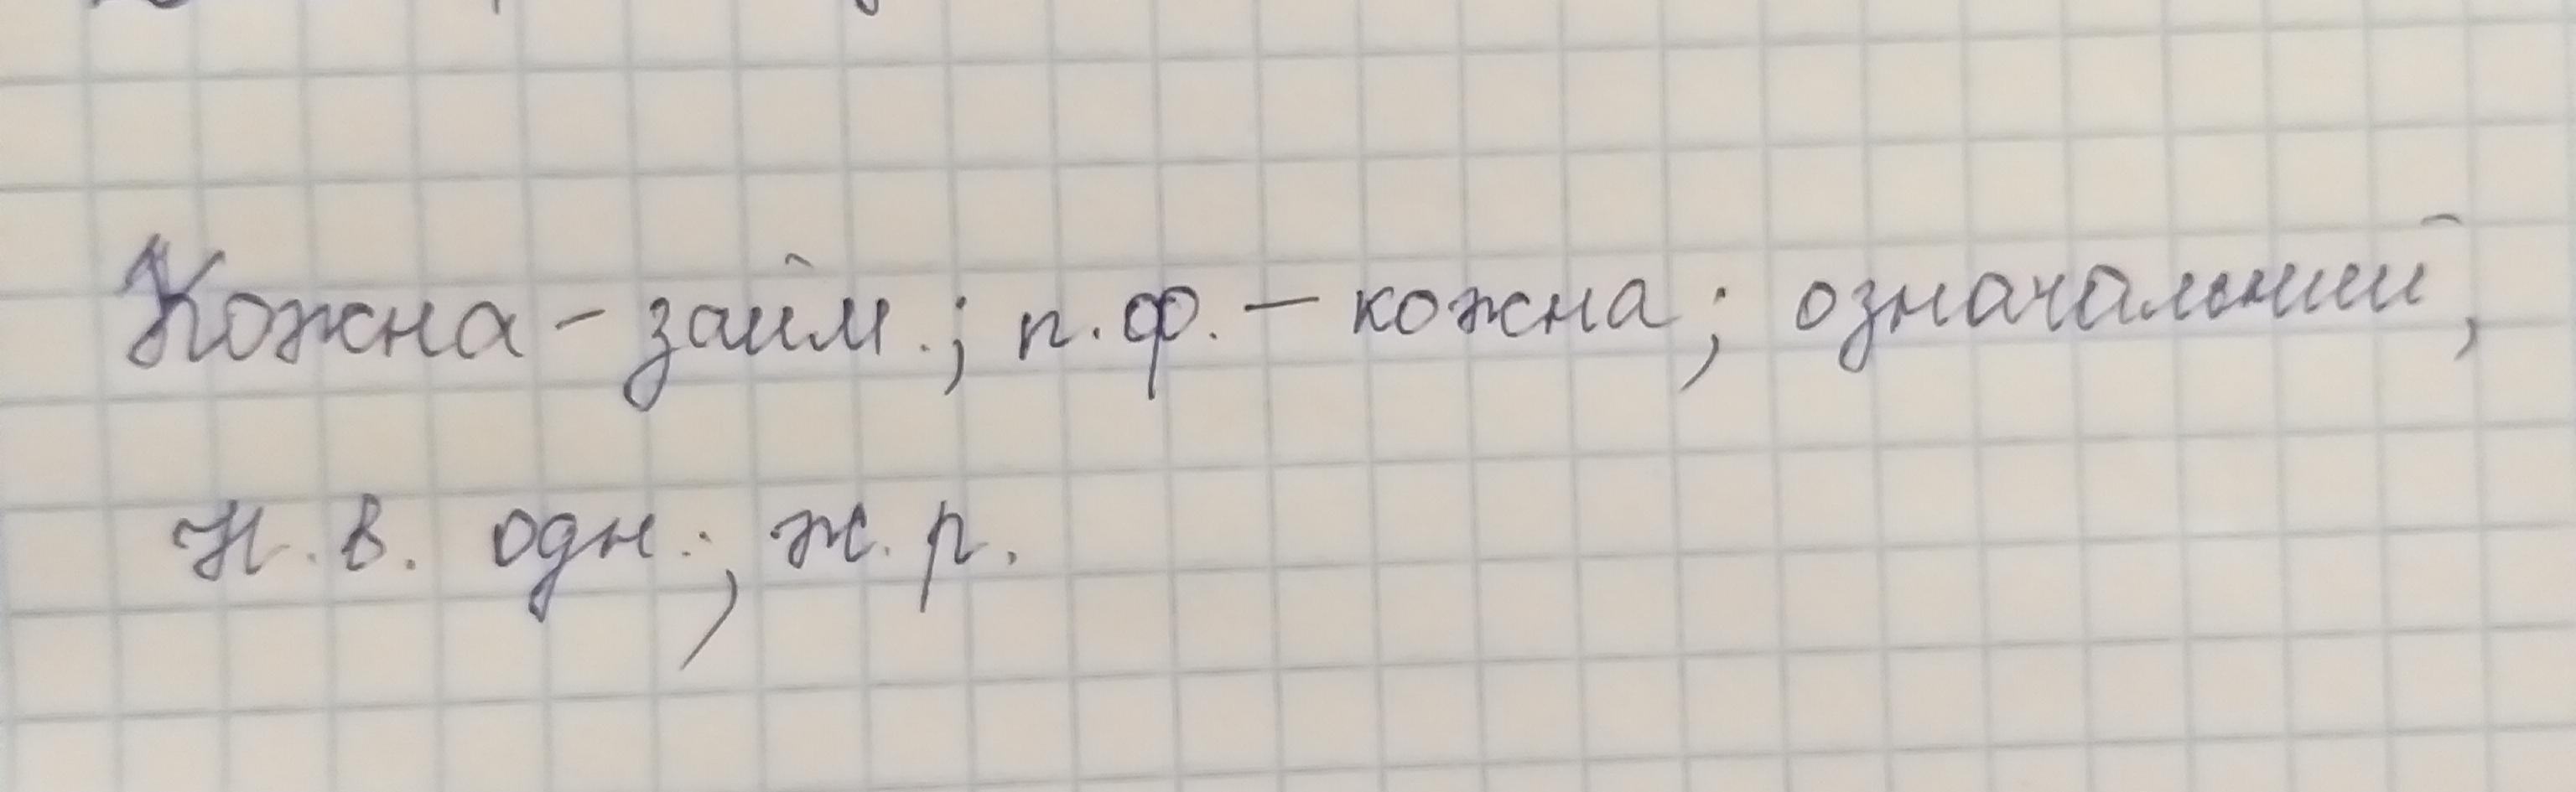 Кожна – займ.; п.ф. – кожна; означальний,
Н.в. одн.; ж.р.